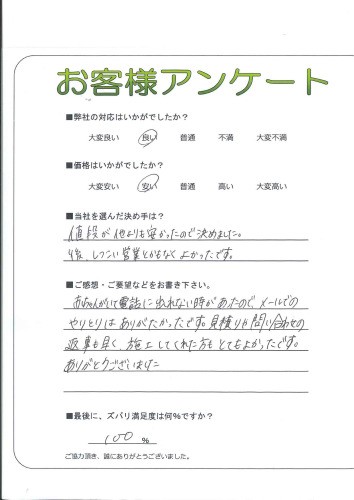 お客様アンケート
■弊社の対応はいかがでしたか？
大変良い 良い 普通 不満 大変不満
■価格はいかがでしたか？
大変安い 安い 普通 高い 大変高い
■当社を選んだ決め手は？
値段が他よりも安かったので決めました。
後、しつこい営業とかもなくよかったです。
■ご感想・ご要望などをお書き下さい。
赤ちゃんがいて電話に出れない時があたので、メールでの
やりとりはありがたかったです。見積りや問い合わせの
返事も早く、施工してくれた方もとてもよかったです。
ありがとうございました
■最後に、ズバリ満足度は何％ですか？
100 %
ご協力頂き、誠にありがとうございました。